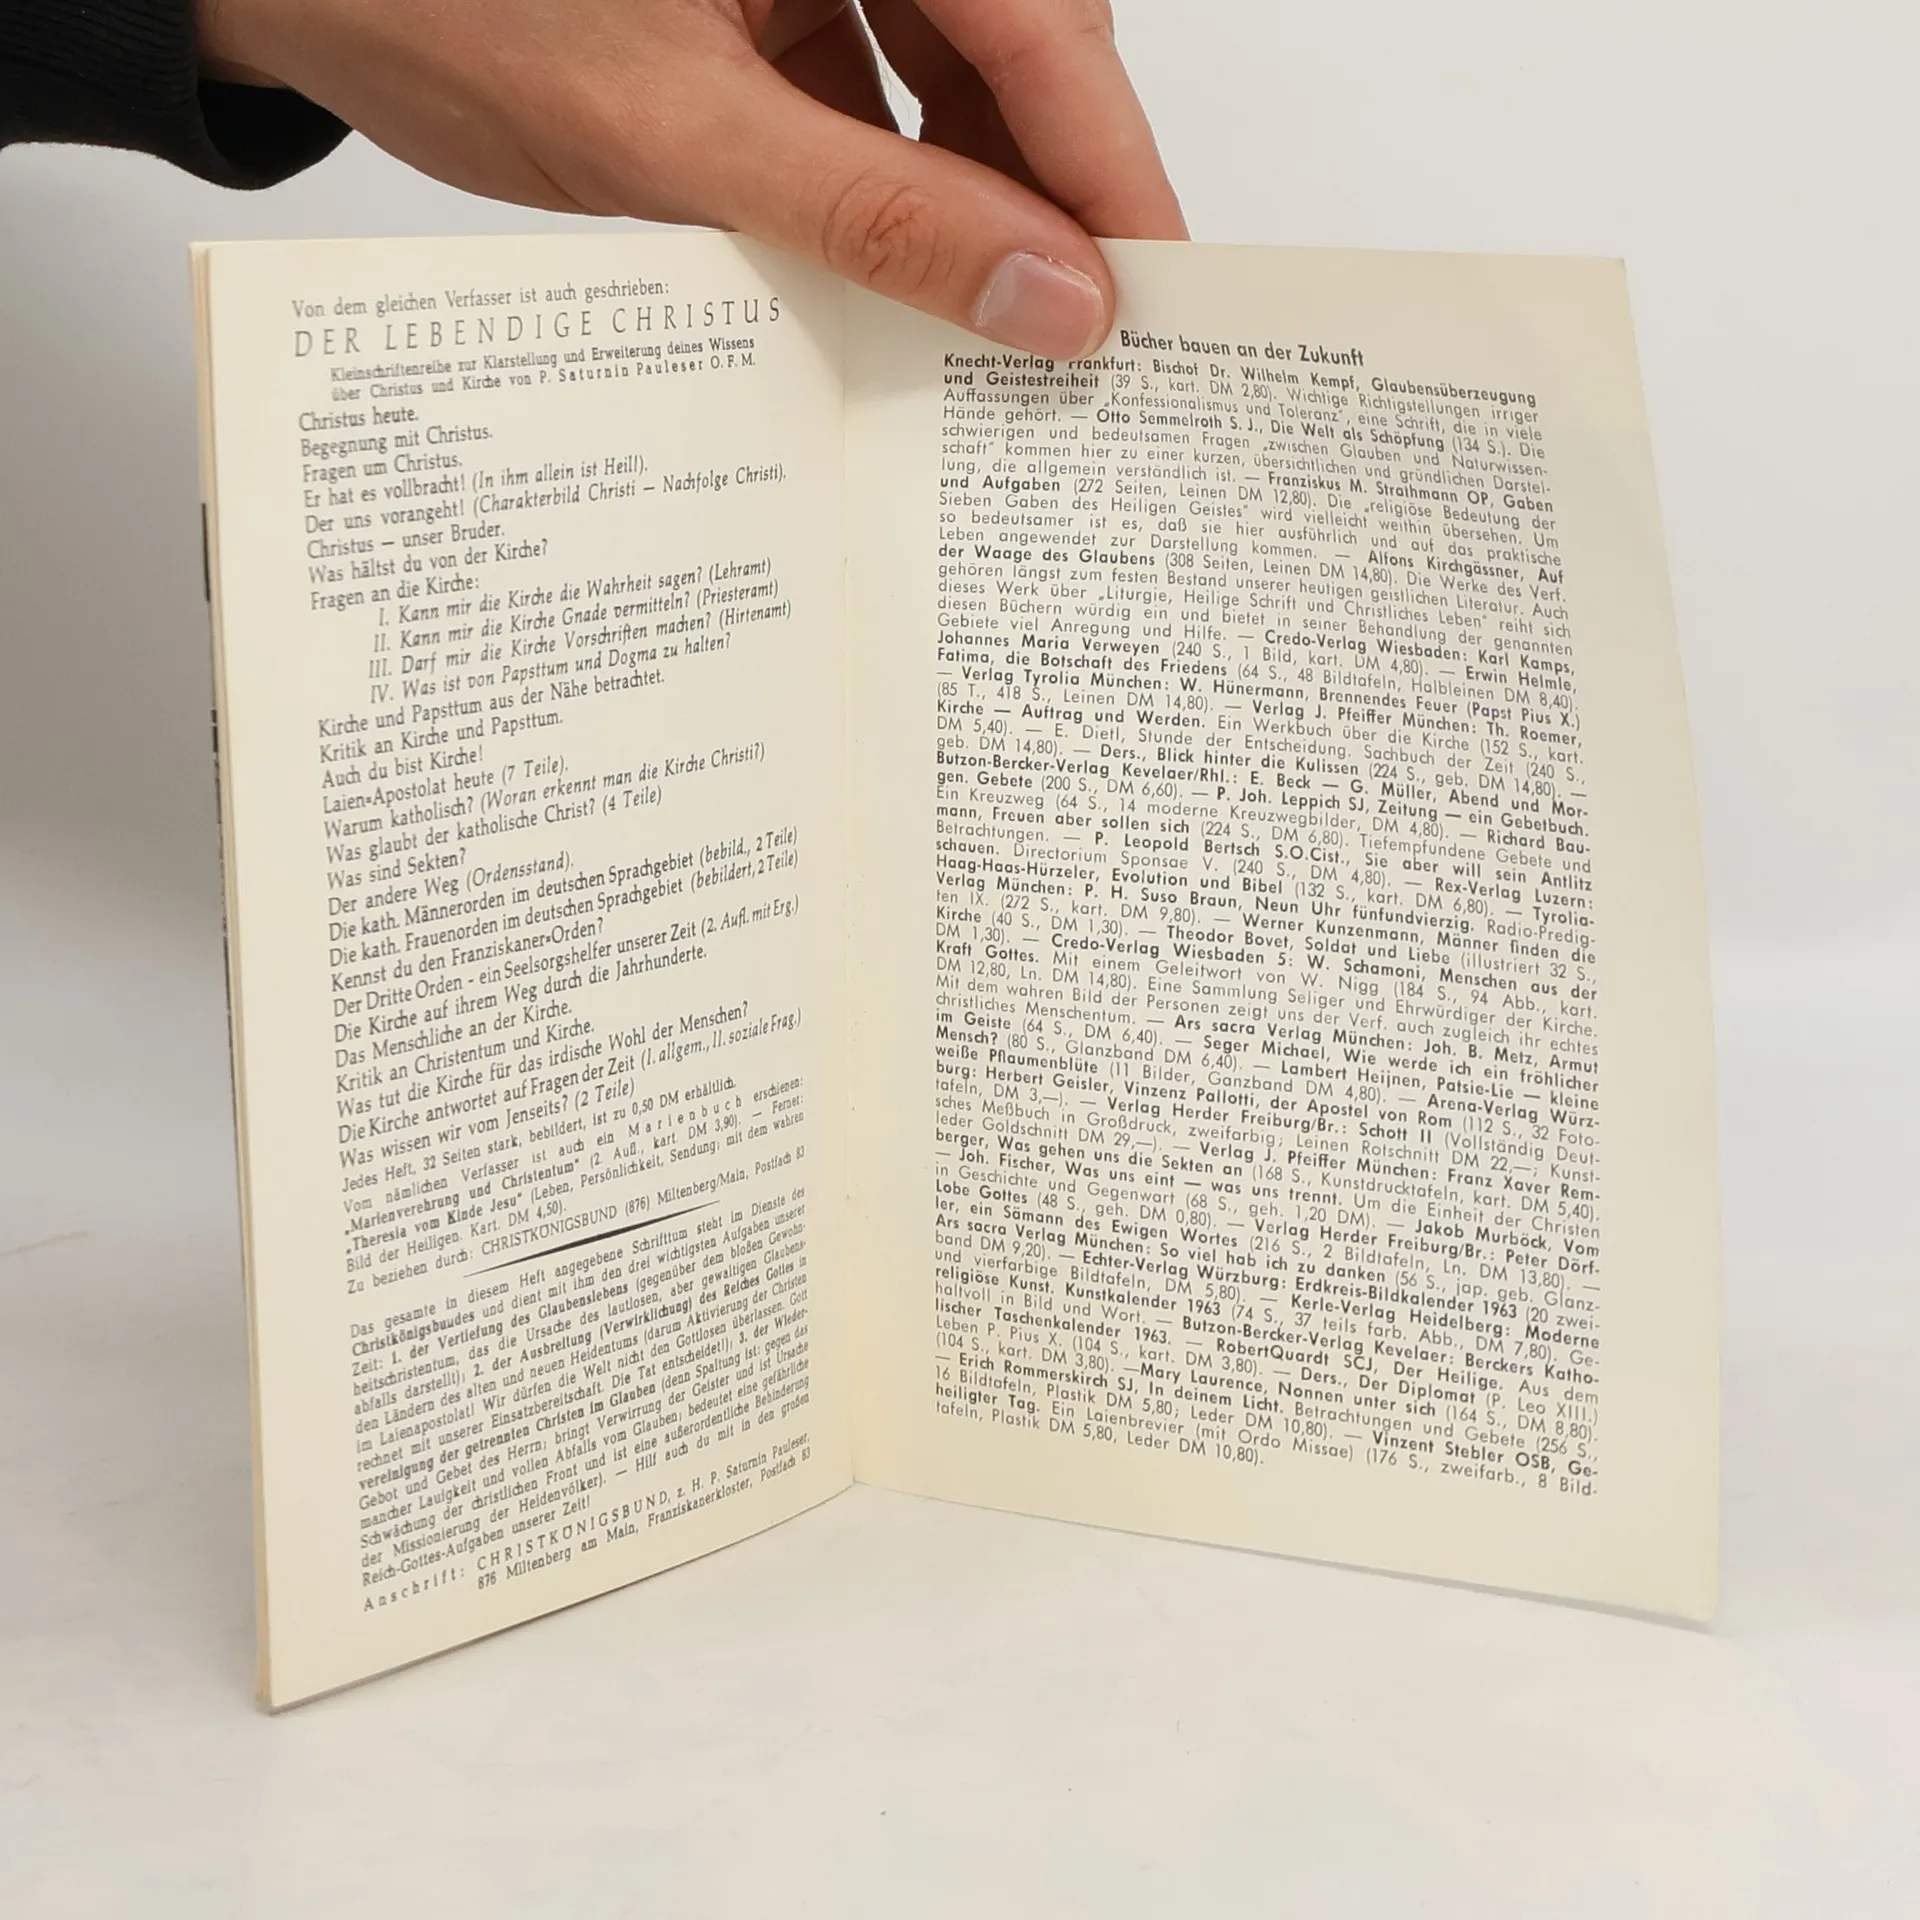 Von dem gleichen Verfasser ist auch geschrieben:
DER LEBENDIGE CHRISTUS
Kleinschriftenreihe zur Klarstellung und Erweiterung deines Wissens
über Christus und Kirche von P. Saturnin Pauleser O.F.M.
Christus heute.
Begegnung mit Christus.
Fragen um Christus.
Er hat es vollbracht! (In ihm allein ist Heil!).
Der uns vorangeht! (Charakterbild Christi — Nachfolge Christi).
Christus — unser Bruder.
Was hältst du von der Kirche?
Fragen an die Kirche:
I. Kann mir die Kirche die Wahrheit sagen? (Lehramt)
II. Kann mir die Kirche Gnade vermitteln? (Priesteramt)
III. Darf mir die Kirche Vorschriften machen? (Hirtenamt)
IV. Was ist von Papsttum und Dogma zu halten?
Kirche und Papsttum aus der Nähe betrachtet.
Kritik an Kirche und Papsttum.
Auch du bist Kirche!
Laien=Apostolat heute (7 Teile).
Warum katholisch? (Woran erkennt man die Kirche Christi?)
Was glaubt der katholische Christ? (4 Teile)
Was sind Sekten?
Der andere Weg (Ordensstand).
Die kath. Männerorden im deutschen Sprachgebiet (bebild., 2 Teile)
Die kath. Frauenorden im deutschen Sprachgebiet (bebildert, 2 Teile)
Kennst du den Franziskaner=Orden?
Der Dritte Orden - ein Seelsorgshelfer unserer Zeit (2. Aufl. mit Erg.)
Die Kirche auf ihrem Weg durch die Jahrhunderte.
Das Menschliche an der Kirche.
Kritik an Christentum und Kirche.
Was tut die Kirche für das irdische Wohl der Menschen?
Die Kirche antwortet auf Fragen der Zeit (I. allgem., II. soziale Frag.)
Was wissen wir vom Jenseits? (2 Teile)
Jedes Heft, 32 Seiten stark, bebildert, ist zu 0,50 DM erhältlich.
Vom nämlichen Verfasser ist auch ein Marienbuch erschienen:
„Marienverehrung und Christentum“ (2. Aufl., kart. DM 3,90). — Ferner:
„Theresia vom Kinde Jesu“ (Leben, Persönlichkeit, Sendung; mit dem wahren
Bild der Heiligen. Kart. DM 4,50).
Zu beziehen durch: CHRISTKÖNIGSBUND (876) Miltenberg/Main, Postfach 83
Das gesamte in diesem Heft angegebene Schrifttum steht im Dienste des
Christkönigsbundes und dient mit ihm den drei wichtigsten Aufgaben unserer
Zeit: 1. der Vertiefung des Glaubenslebens (gegenüber dem bloßen Gewohn-
heitschristentum, das die Ursache des lautlosen, aber gewaltigen Glaubens-
abfalls darstellt); 2. der Ausbreitung (Verwirklichung) des Reiches Gottes in
den Ländern des alten und neuen Heidentums (darum Aktivierung der Christen
im Laienapostolat! Wir dürfen die Welt nicht den Gottlosen überlassen. Gott
rechnet mit unserer Einsatzbereitschaft. Die Tat entscheidet!); 3. der Wieder-
vereinigung der getrennten Christen im Glauben (denn Spaltung ist: gegen das
Gebot und Gebet des Herrn; bringt Verwirrung der Geister und ist Ursache
mancher Lauigkeit und vollen Abfalls vom Glauben; bedeutet eine gefährliche
Schwächung der christlichen Front und ist eine außerordentliche Behinderung
der Missionierung der Heidenvölker). — Hilf auch du mit in den großen
Reich-Gottes-Aufgaben unserer Zeit!
Anschrift: CHRISTKÖNIGSBUND, z. H. P. Saturnin Pauleser,
876 Miltenberg am Main, Franziskanerkloster, Postfach 83
Bücher bauen an der Zukunft
Knecht-Verlag Frankfurt: Bischof Dr. Wilhelm Kempf, Glaubensüberzeugung
und Geistestreiheit (39 S., kart. DM 2,80). Wichtige Richtigstellungen irriger
Auffassungen über „Konfessionalismus und Toleranz“, eine Schrift, die in viele
Hände gehört. — Otto Semmelroth S. J., Die Welt als Schöpfung (134 S.). Die
schwierigen und bedeutsamen Fragen „zwischen Glauben und Naturwissen-
schaft“ kommen hier zu einer kurzen, übersichtlichen und gründlichen Darstel-
lung, die allgemein verständlich ist. — Franziskus M. Strathmann OP, Gaben
und Aufgaben (272 Seiten, Leinen DM 12,80). Die „religiöse Bedeutung der
Sieben Gaben des Heiligen Geistes“ wird vielleicht weithin übersehen. Um
so bedeutsamer ist es, daß sie hier ausführlich und auf das praktische
Leben angewendet zur Darstellung kommen. — Alfons Kirchgässner, Auf
der Waage des Glaubens (308 Seiten, Leinen DM 14,80). Die Werke des Verf.
gehören längst zum festen Bestand unserer heutigen geistlichen Literatur. Auch
dieses Werk über „Liturgie, Heilige Schrift und Christliches Leben“ reiht sich
diesen Büchern würdig ein und bietet in seiner Behandlung der genannten
Gebiete viel Anregung und Hilfe. — Credo-Verlag Wiesbaden: Karl Kamps,
Johannes Maria Verweyen (240 S., 1 Bild, kart. DM 4,80). — Erwin Helmle,
Fatima, die Botschaft des Friedens (64 S., 48 Bildtafeln, Halbleinen DM 8,40).
— Verlag Tyrolia München: W. Hünermann, Brennendes Feuer (Papst Pius X.)
(85 T., 418 S., Leinen DM 14,80). — Verlag J. Pfeiffer München: Th. Roemer,
Kirche — Auftrag und Werden. Ein Werkbuch über die Kirche (152 S., kart.
DM 5,40). — E. Dietl, Stunde der Entscheidung. Sachbuch der Zeit (240 S.,
geb. DM 14,80). — Ders., Blick hinter die Kulissen (224 S., geb. DM 14,80). —
Butzon-Bercker-Verlag Kevelaer/Rhl.: E. Beck — G. Müller, Abend und Mor-
gen. Gebete (200 S., DM 6,60). — P. Joh. Leppich SJ, Zeitung — ein Gebetbuch.
Ein Kreuzweg (64 S., 14 moderne Kreuzwegbilder, DM 4,80). — Richard Bau-
mann, Freuen aber sollen sich (224 S., DM 6,80). Tiefempfundene Gebete und
Betrachtungen. — P. Leopold Bertsch S.O.Cist., Sie aber will sein Antlitz
schauen. Directorium Sponsae V. (240 S., DM 4,80). — Rex-Verlag Luzern:
Haag-Haas-Hürzeler, Evolution und Bibel (132 S., kart. DM 6,80). — Tyrolia-
Verlag München: P. H. Suso Braun, Neun Uhr fünfundvierzig. Radio-Predig-
ten IX. (272 S., kart. DM 9,80). — Werner Kunzenmann, Männer finden die
Kirche (40 S., DM 1,30). — Theodor Bovet, Soldat und Liebe (illustriert 32 S.,
DM 1,30). — Credo-Verlag Wiesbaden 5: W. Schamoni, Menschen aus der
Kraft Gottes. Mit einem Geleitwort von W. Nigg (184 S., 94 Abb., kart.
DM 12,80, Ln. DM 14,80). Eine Sammlung Seliger und Ehrwürdiger der Kirche.
Mit dem wahren Bild der Personen zeigt uns der Verf. auch zugleich ihr echtes
christliches Menschentum. — Ars sacra Verlag München: Joh. B. Metz, Armut
im Geiste (64 S., DM 6,40). — Seger Michael, Wie werde ich ein fröhlicher
Mensch? (80 S., Glanzband DM 6,40). — Lambert Heijnen, Patsie-Lie — kleine
weiße Pflaumenblüte (11 Bilder, Ganzband DM 4,80). — Arena-Verlag Würz-
burg: Herbert Geisler, Vinzenz Pallotti, der Apostel von Rom (112 S., 32 Foto-
tafeln, DM 3,—). — Verlag Herder Freiburg/Br.: Schott II (Vollständig Deut-
sches Meßbuch in Großdruck, zweifarbig; Leinen Rotschnitt DM 22,—; Kunst-
leder Goldschnitt DM 29,—). — Verlag J. Pfeiffer München: Franz Xaver Rem-
berger, Was gehen uns die Sekten an (168 S., Kunstdrucktafeln, kart. DM 5,40).
— Joh. Fischer, Was uns eint — was uns trennt. Um die Einheit der Christen
in Geschichte und Gegenwart (68 S., geh. 1,20 DM). — Jakob Murböck, Vom
Lobe Gottes (48 S., geh. DM 0,80). — Verlag Herder Freiburg/Br.: Peter Dörf-
ler, ein Sämann des Ewigen Wortes (216 S., 2 Bildtafeln, Ln. DM 13,80). —
Ars sacra Verlag München: So viel hab ich zu danken (56 S., jap. geb. Glanz-
band DM 9,20). — Echter-Verlag Würzburg: Erdkreis-Bildkalender 1963 (20 zwei-
und vierfarbige Bildtafeln, DM 5,80). — Kerle-Verlag Heidelberg: Moderne
religiöse Kunst. Kunstkalender 1963 (74 S., 37 teils farb. Abb., DM 7,80). Ge-
haltvoll in Bild und Wort. — Butzon-Bercker-Verlag Kevelaer: Berckers Katho-
lischer Taschenkalender 1963. — RobertQuardt SCJ, Der Heilige. Aus dem
Leben P. Pius X. (104 S., kart. DM 3,80). — Ders., Der Diplomat (P. Leo XIII.)
(104 S., kart. DM 3,80). —Mary Laurence, Nonnen unter sich (164 S., DM 8,80).
— Erich Rommerskirch SJ, In deinem Licht. Betrachtungen und Gebete (256 S.,
16 Bildtafeln, Plastik DM 5,80; Leder DM 10,80). — Vinzent Stebler OSB, Ge-
heiligter Tag. Ein Laienbrevier (mit Ordo Missae) (176 S., zweifarb., 8 Bild-
tafeln, Plastik DM 5,80, Leder DM 10,80).